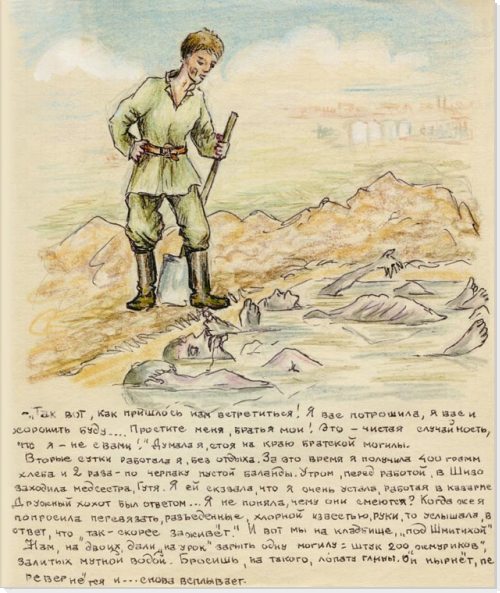 ~„Так вот, как пришлось нам встретиться! Я вас потрошила, я вас и
хоронить буду.... Простите меня, братья мои! Это – чистая случайность,
что я – не с вами!" Думала я, стоя на краю братской могилы.
Вторые сутки работала я, без отдыха. За это время я получила 400 грамм
хлеба и 2 раза – по черпаку пустой баланды. Утром, перед работой, в Шизо
заходила медсестра, Гутя. Я ей сказала, что я очень устала, работая в казарме
Дружный хохот был ответом... Я не поняла, чему они смеются? Когда же я
попросила перевязать, разъеденные, хлорной известью, руки, то услышала, в
ответ, что „так – скорее заживет." И вот мы на кладбище, „под Шмитихой"
Нам, на двоих, дали „на урок" зарыть одну могилу = штук 200 „жмуриков",
залитых мутной водой. Бросишь, на такого, лопату глины. Он нырнет, пе
ревернётся и... снова всплывает.